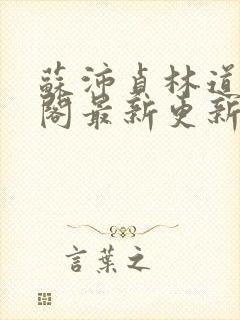 蘇沛貞林道
閣最新更新
言葉之